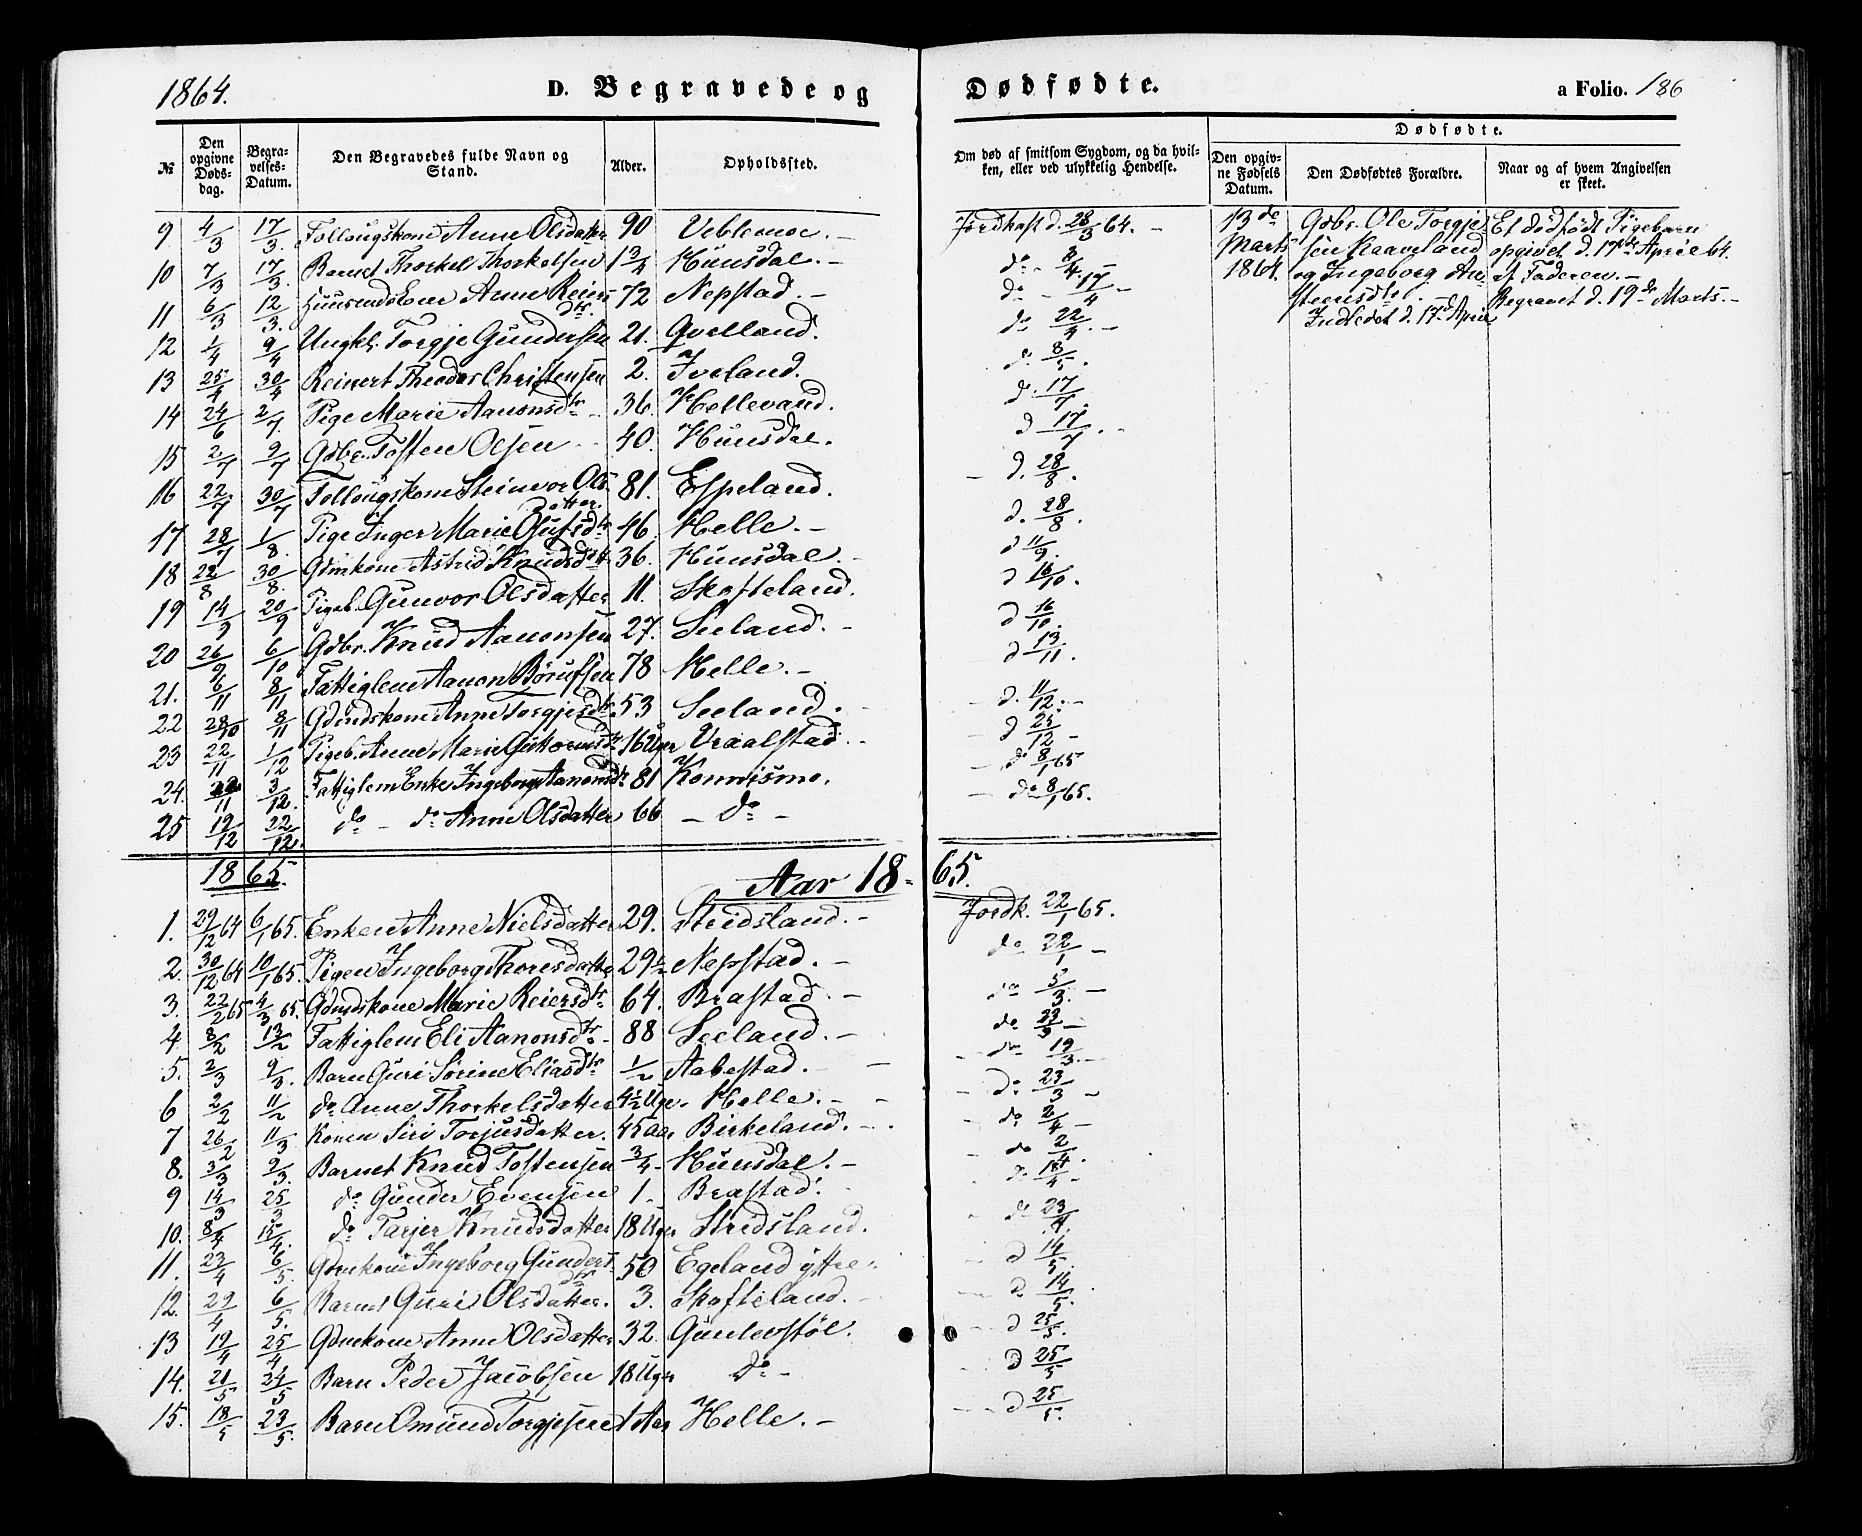 1864.
D. Begravede og
Dødfødte.
a Folio. 186
№
Den opgivne Dødsdag.
Begravelses-Datum.
Den Begravedes fulde Navn og Stand.
Alder.
Opholdssted.
Om død af smitsom Sygdom, og da hvilken, eller ved ulykkelig Hendelse.
Dødfødte.
Den opgivne Fødsels Datum.
Den Dødfødtes Forældre.
Naar og af hvem Angivelsen er skeet.
9 4/3 17/3 Anne Olsdatter 90 Jordkast d. 28/3 64. -
10 7/3 17/3. Barnet Thorkel Thorkelsen 1 3/4 Hunsdal. - do - 8/4.
11 6/3 12/3. Anne Reiersdtr. 72 Nepstad. - do - 17/4 -
12 1/4 9/4 Ungkl. Torgje Gundersen 21. Qvelland. do 22/4 -
13 25/4 30/4 Reinert Theodor Christensen 2. Iveland. d. 8/5.
14 24/6 2/7. Pige Marie Aanonsdtr 36. Hellevand. d. 17/7.
15 2/7 9/7 Gdbr. Tosten Olsen 40. Hunsdal. d 17/7. -
16 22/7 30/7 Follougskone Steinvor Olsdatter. 81. Espeland. - d. 28/8.
17 28/7 1/8. Pige Inger Marie 46. Helle. - d. 28/8.
18 22/8 30/8. Gdmkone Astrid Knudsdtr 36. Hunsdal. - d 11/9.
19 14/9 20/9 Pigeb. Gunvor Olsdatter 11. Skofteland. d 16/10.
20 26/9 6/10 Gdbr. Knud Aanonsen 27. Seeland. - d 16/10.
21. 6/11 8/11 Fattiglem Aanon 78 Helle. - d 13/11.
22 28/10 8/11 Gdmdskone Anne Torgjesdtr. 53 Seeland. - d. 11/12. -
23 22/11 1/12 Pigeb. Anne Marie 16 Uger Vraalstad. - d 25/12 -
24. 11 3/12. Fattiglem Enke Ingeborg Aanonsdtr 81 Konnismo. - do 8/1 65
25 19/12 22/12. do - do Anne Olsdatter 66 - do - - do 8/1 65.
13de Marts 1864.
Gdbr. Ole Torgje
sen
og Ingeborg
Indledet d. 17 April
Et dødfødt Pigebarn
opgivet d. 17de April 64.
af Faderen. -
Begravet d. 19de Marts. -
18 65.
Aar 18-65.
1. 29/12 64 6/1 65. Enken Anne Nielsdatter 29. Stridsland. - Jordk. 22/1 65.
2. 30/12 64 10/1 65. Pigen Ingeborg Thoresdatter 29 1/2 Nepstad. - do 22/1 -
3. 22/2 65 4/3 65. Gdmdskone Marie Reiersdtr 64. Brastad. - do 5/3. -
4. 8/2 13/2 Fattiglem Eli Aanonsdtr - 88 Seeland. - do 23/3 -
5. 2/3 9/3. Barn Guri Sørine Eliasdtr 1/2 Aabestad. - - do 19/3. -
6 2/2 11/2 do Anne Thorkelsdatter 4 1/2 Uge. Helle. - - do 23/3 -
7 26/2 11/3. Konen Siri Torjusdatter. 45 Aar Birkeland. - - do 2/4 -
8. 3/3 9/3. Barnet Knud Tostensen 3/4 - Hunsdal. - - do 2/4.
9 14/3 25/3 do Gunder Evensen 1. Brastad. - d. 17/4 -
10. 8/4 15/4. do Tarjer Knudsdatter 18 Uger Stridsland. - do 23/4.
11. 23/4 6/5. Gdmkone Ingeborg Gundersdtr 50 Egeland ytre. - d 14/5.
12. 29/4 6/5. Barnet Guri Olsdatter. 3. Skofteland. - d. 14/5.
13 19/4 25/4 Gdmkone Anne Olsdatter 32. Gunlevstøl. - d 25/5.
14. 21/5 24/5 Barn Peder Jacobsen 18 Uger do - - d 25/5
15. 18/5 23/5. Barn Omund Torgjesen 1 Aar Helle. - - d 25/5.